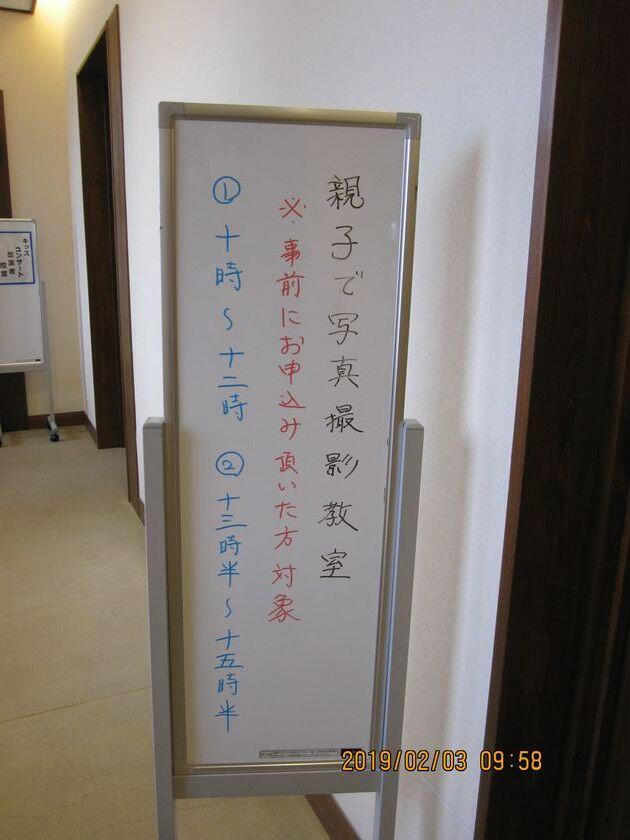 親子で写真撮影教室
※事前にお申込み頂いた方対象
①十時～十二時 ②十三時半～十五時半
キッズ
コンサート
出演者
控室
2019/02/03 09:58